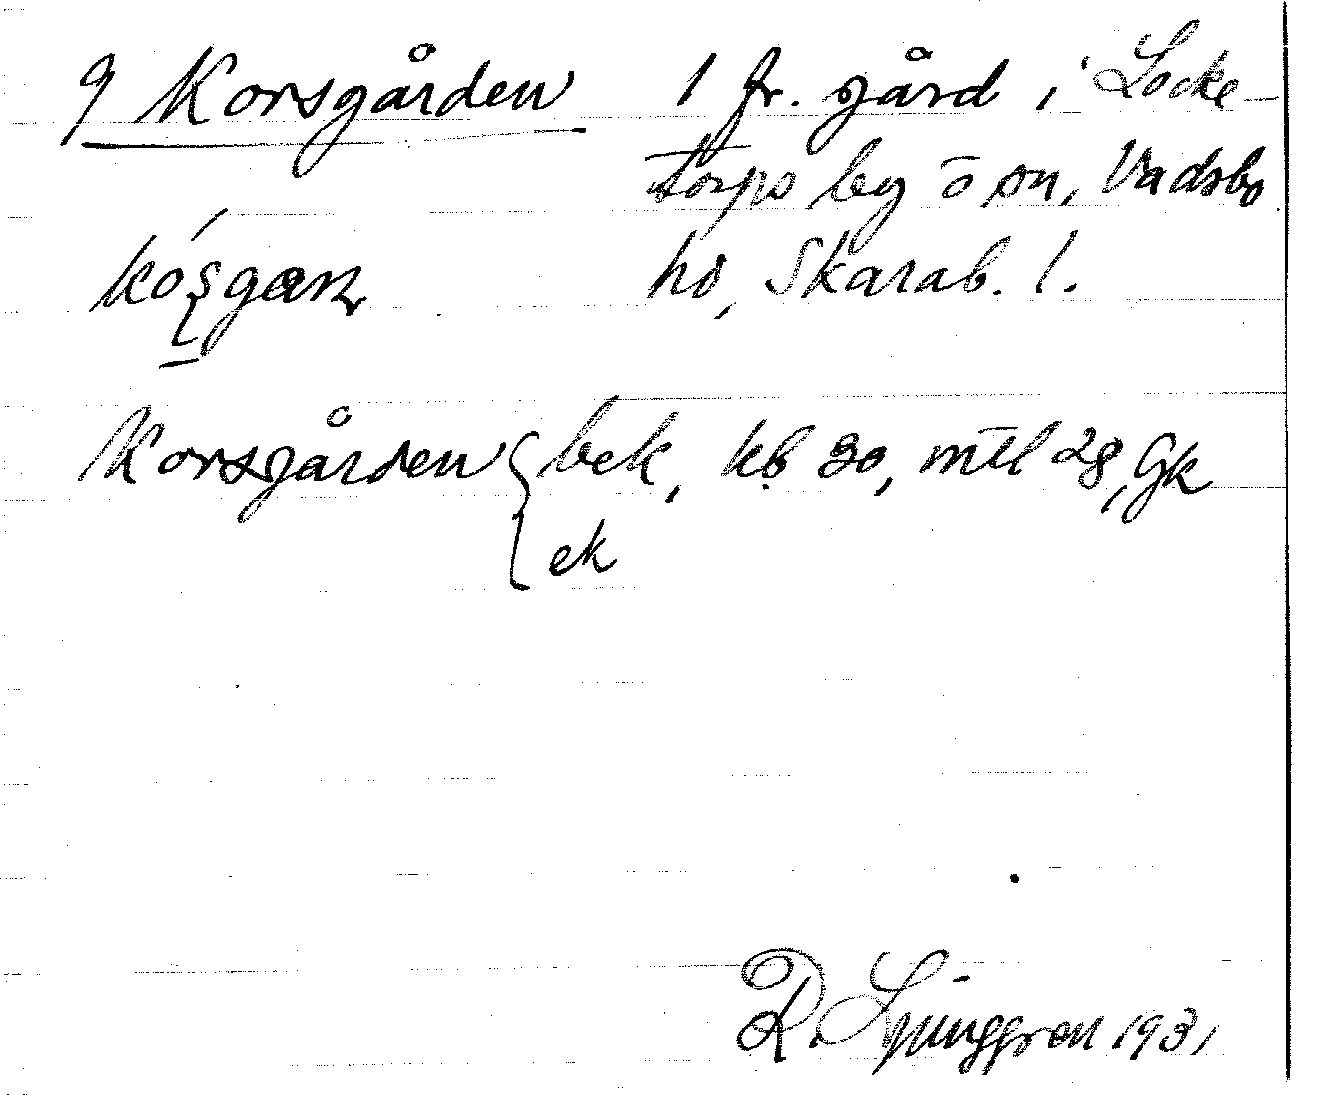 9 Korsgården 1 fr. gård i Locke-
torps by o sn, Vadsbo
hd, Skarab. l.
Korsgården { bek, kb 30, mtl 28, Gk
ek
R. Ljunggren 1931